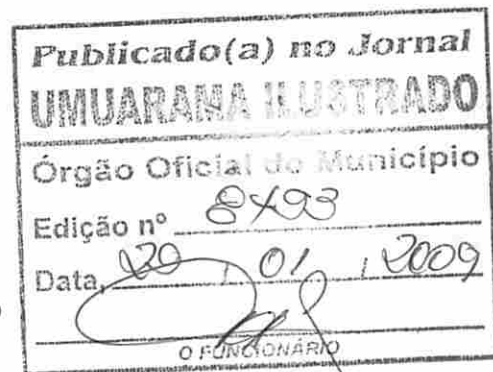 Publicado(a) no Jornal
UMUARAMA ILUSTRADO
Órgão Oficial do Município
Edição nº 8493
Data, 20 / 01 / 2009
O FUNCIONÁRIO